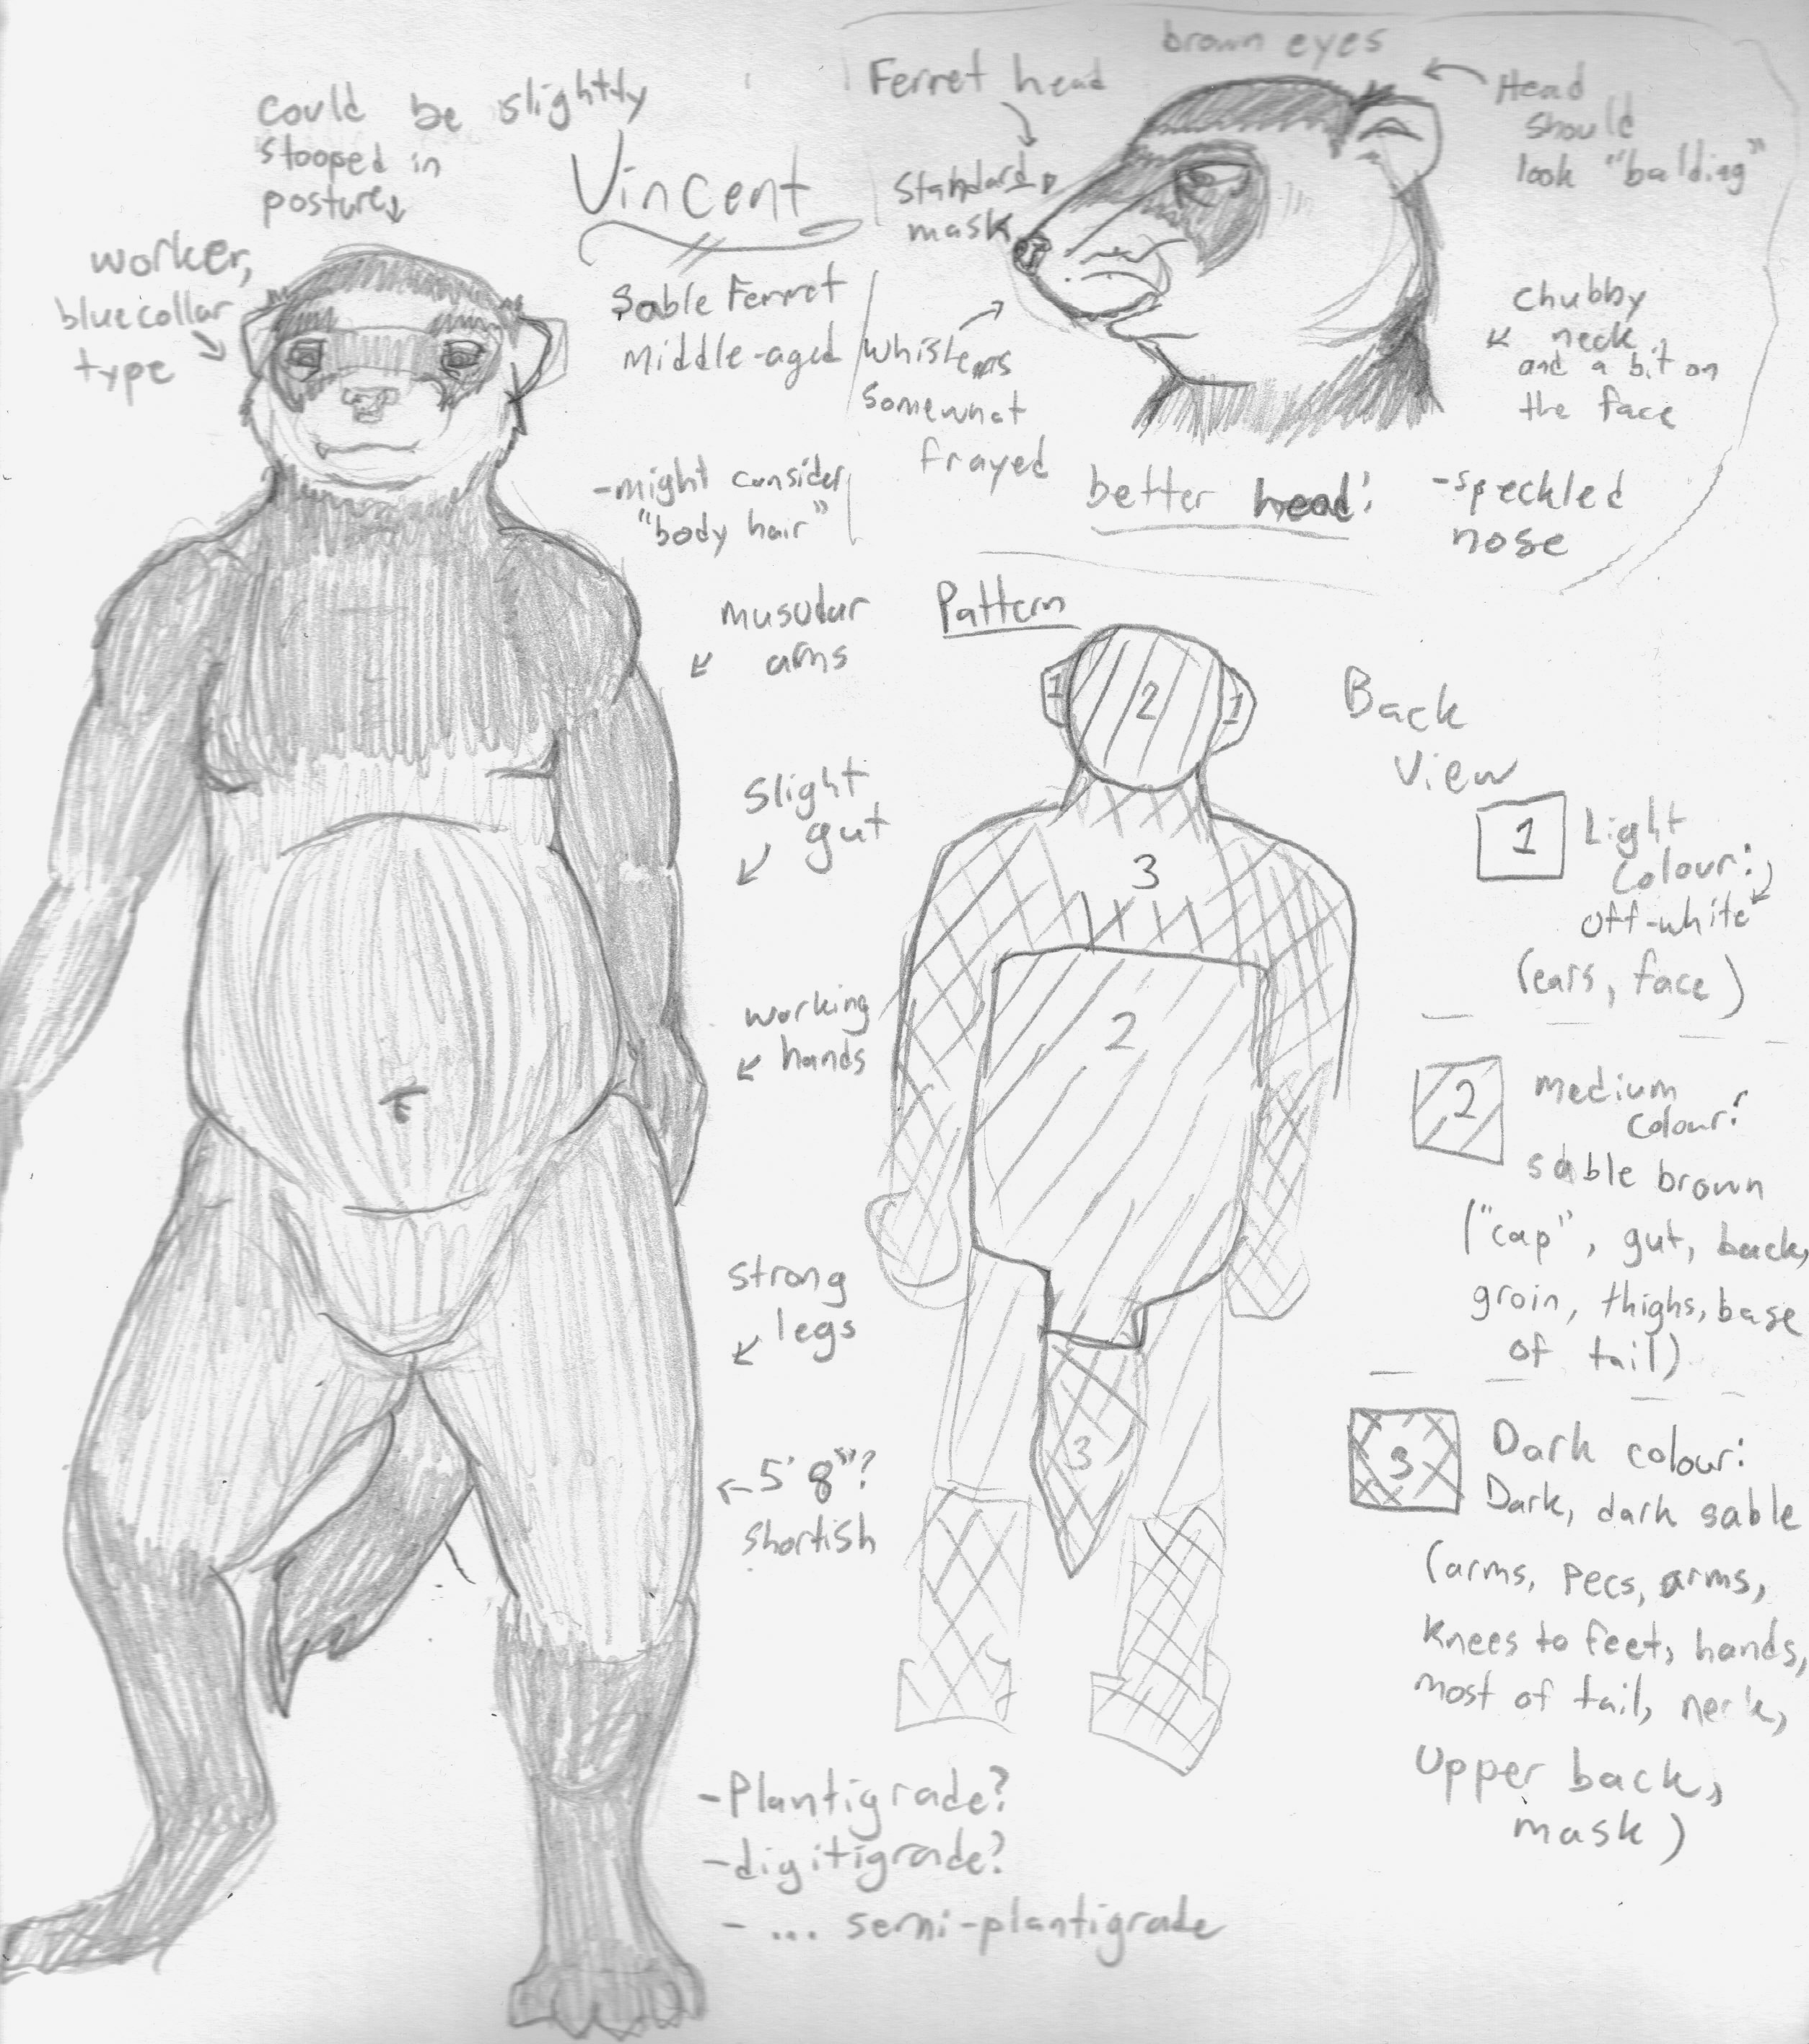 could be slightly
stooped in
posture
worker,
blue collar
type
Vincent
Sable Ferret
Middle-aged
-might consider
"body hair"
brown eyes
Ferret head
Standard
mask
Head
should
look "balding"
whiskers
somewhat
frayed
chubby
neck
and a bit on
the face
better head:
-speckled
nose
muscular
arms
Slight
gut
working
hands
strong
legs
5'8"?
shortish
-Plantigrade?
-digitigrade?
-... semi-plantigrade
Pattern
Back
View
1
2
1
3
2
3
1
Light
colour:
off-white
(ears, face)
2
medium
colour:
sable brown
("cap", gut, back,
groin, thighs, base
of tail)
3
Dark colour:
Dark, dark sable
(arms, pecs, arms,
knees to feet, hands,
most of tail, neck,
Upper back,
mask)